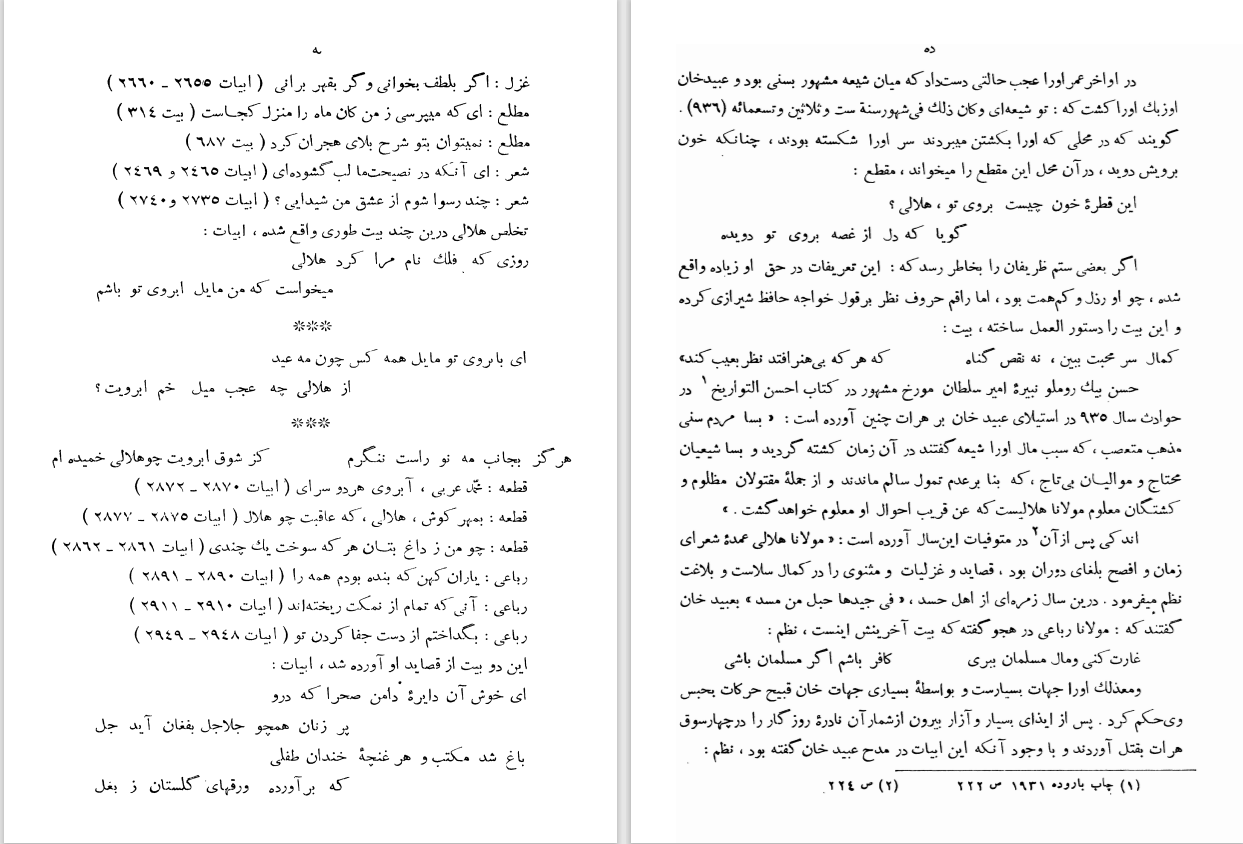 نه
غزل : اگر بلطف بخوانی وگر بقهر برانی ( ابیات ۲٦٥٥ ـ ۲٦٦۰ )
مطلع : ای که میپرسی ز من کان ماه را منزل کجاست ( بیت ۳۱٤ )
مطلع : نمیتوان بتو شرح بلای هجران کرد ( بیت ٦۸۷ )
شعر : ای آنکه در نصیحت‌ما لب گشوده‌ای ( ابیات ۲٤٦٥ و ۲٤٦۹ )
شعر : چند رسوا شوم از عشق من شیدایی ؟ ( ابیات ۲۷۳٥ و۲۷٤۰ )
تخلص هلالی درین چند بیت طوری واقع شده ، ابیات :
روزی که فلك نام مرا کرد هلالی
میخواست که من مایل ابروی تو باشم
***
ای بابروی تو مایل همه کس چون مه عید
از هلالی چه عجب میل خم ابرویت ؟
***
هرگز بجانب مه نو راست ننگرم کز شوق ابرویت چوهلالی خمیده ام
قطعه : محمد عربی ، آبروی هردو سرای ( ابیات ۲۸۷۰ ـ ۲۸۷۲ )
قطعه : بمهر کوش ، هلالی ، که عاقبت چو هلال ( ابیات ۲۸۷٥ ـ ۲۸۷۷ )
قطعه : چو من ز داغ بتان هر که سوخت یك چندی ( ابیات ۲۸٦۱ ـ ۲۸٦۲ )
رباعی : یاران کهن که بنده بودم همه را ( ابیات ۲۸۹۰ ـ ۲۸۹۱ )
رباعی : آنی که تمام از نمکت ریخته‌اند ( ابیات ۲۹۱۰ ـ ۲۹۱۱ )
رباعی : بگداختم از دست جفا کردن تو ( ابیات ۲۹٤۸ ـ ۲۹٤۹ )
این دو بیت از قصاید او آورده شد ، ابیات :
ای خوش آن دایرۀ دامن صحرا که درو
پر زنان همچو جلاجل بفغان آید جل
باغ شد مکتب و هر غنچۀ خندان طفلی
که برآورده ورقهای گلستان ز بغل
ده
در اواخر عمر اورا عجب حالتی دست‌داد که میان شیعه مشهور بسنی بود و عبیدخان
اوزبك اورا کشت که : تو شیعه‌ای وکان ذلك فی‌شهورسنة ست و ثلاثین و تسعمائه (۹۳٦) .
گویند که در محلی که اورا بکشتن میبردند سر اورا شکسته بودند ، چنانکه خون
برویش دوید ، درآن محل این مقطع را میخواند ، مقطع :
این قطرۀ خون چیست بروی تو ، هلالی ؟
گویا که دل از غصه بروی تو دویده
اگر بعضی ستم ظریفان را بخاطر رسد که : این تعریفات در حق او زیاده واقع
شده ، چو او رذل و کم‌همت بود ، اما راقم حروف نظر برقول خواجه حافظ شیرازی کرده
و این بیت را دستور العمل ساخته ، بیت :
کمال سر محبت ببین ، نه نقص گناه که هر که بی‌هنرافتد نظر بعیب کند»
حسن بیك روملو نبیرۀ امیر سلطان مورخ مشهور در کتاب احسن التواریخ ۱ در
حوادث سال ۹۳٥ در استیلای عبید خان بر هرات چنین آورده است : « بسا مردم سنی
مذهب متعصب ، که سبب مال اورا شیعه گفتند در آن زمان کشته گردید و بسا شیعیان
محتاج و موالیان بی‌تاج ، که بنا برعدم تمول سالم ماندند و از جملۀ مقتولان مظلوم و
کشتگان معلوم مولانا هلالیست که عن قریب احوال او معلوم خواهدگشت . »
اندکی پس ازآن ۲ در متوفیات این‌سال آورده است : « مولانا هلالی عمدۀ شعرای
زمان و افصح بلغای دوران بود ، قصاید و غزلیات و مثنوی را در کمال سلاست و بلاغت
نظم میفرمود . درین سال زمره‌ای از اهل حسد ، « فی جیدها حبل من مسد » بعبید خان
گفتند که : مولانا رباعی در هجو گفته که بیت آخرینش اینست ، نظم :
غارت کنی ومال مسلمان ببری کافر باشم اگر مسلمان باشی
ومعذلك اورا جهات بسیارست و بواسطۀ بسیاری جهات خان قبیح حرکات بحبس
وی‌حکم کرد . پس از ایذای بسیار و آزار بیرون ازشمارآن نادرۀ روزگار را درچهارسوق
هرات بقتل آوردند و با وجود آنکه این ابیات در مدح عبید خان گفته بود ، نظم :
(۱) چاپ باروده ۱۹۳۱ ص ۲۲۲ (۲) ص ۲۲٤